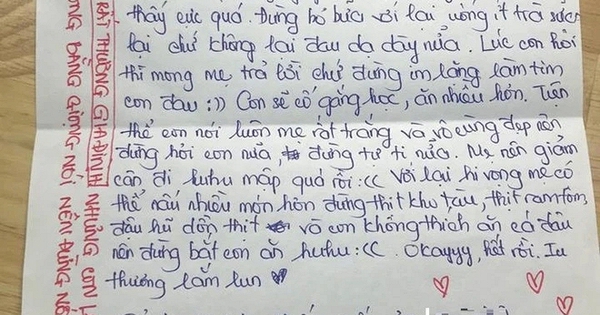 thấy cực quá. Đừng bỏ bữa với lại uống ít trà sữa
lại chứ không lại đau dạ dày nữa. Lúc con hỏi
thì mong mẹ trả lời chứ đừng im lặng làm tim
con đau :)) Con sẽ cố gắng học, ăn nhiều hơn. Tiện
thể con nói luôn mẹ rất trắng và vô cùng đẹp nên
đừng hỏi con nữa, đừng tự ti nữa. Mẹ nên giảm
cân đi huhu mập quá rồi :<< Với lại hi vọng mẹ có
thể nấu nhiều món hơn đừng thịt kho tàu, thịt ram tôm,
đậu hũ dồn thịt và con không thích ăn cá đâu
nên đừng bắt con ăn huhu :<< Okayyy, hết rồi. Iu
thương lắm lun
RẤT THƯƠNG GIA ĐÌNH
NHỮNG CƠN
BẰNG GIỌNG NÓI NÊN ĐỪNG